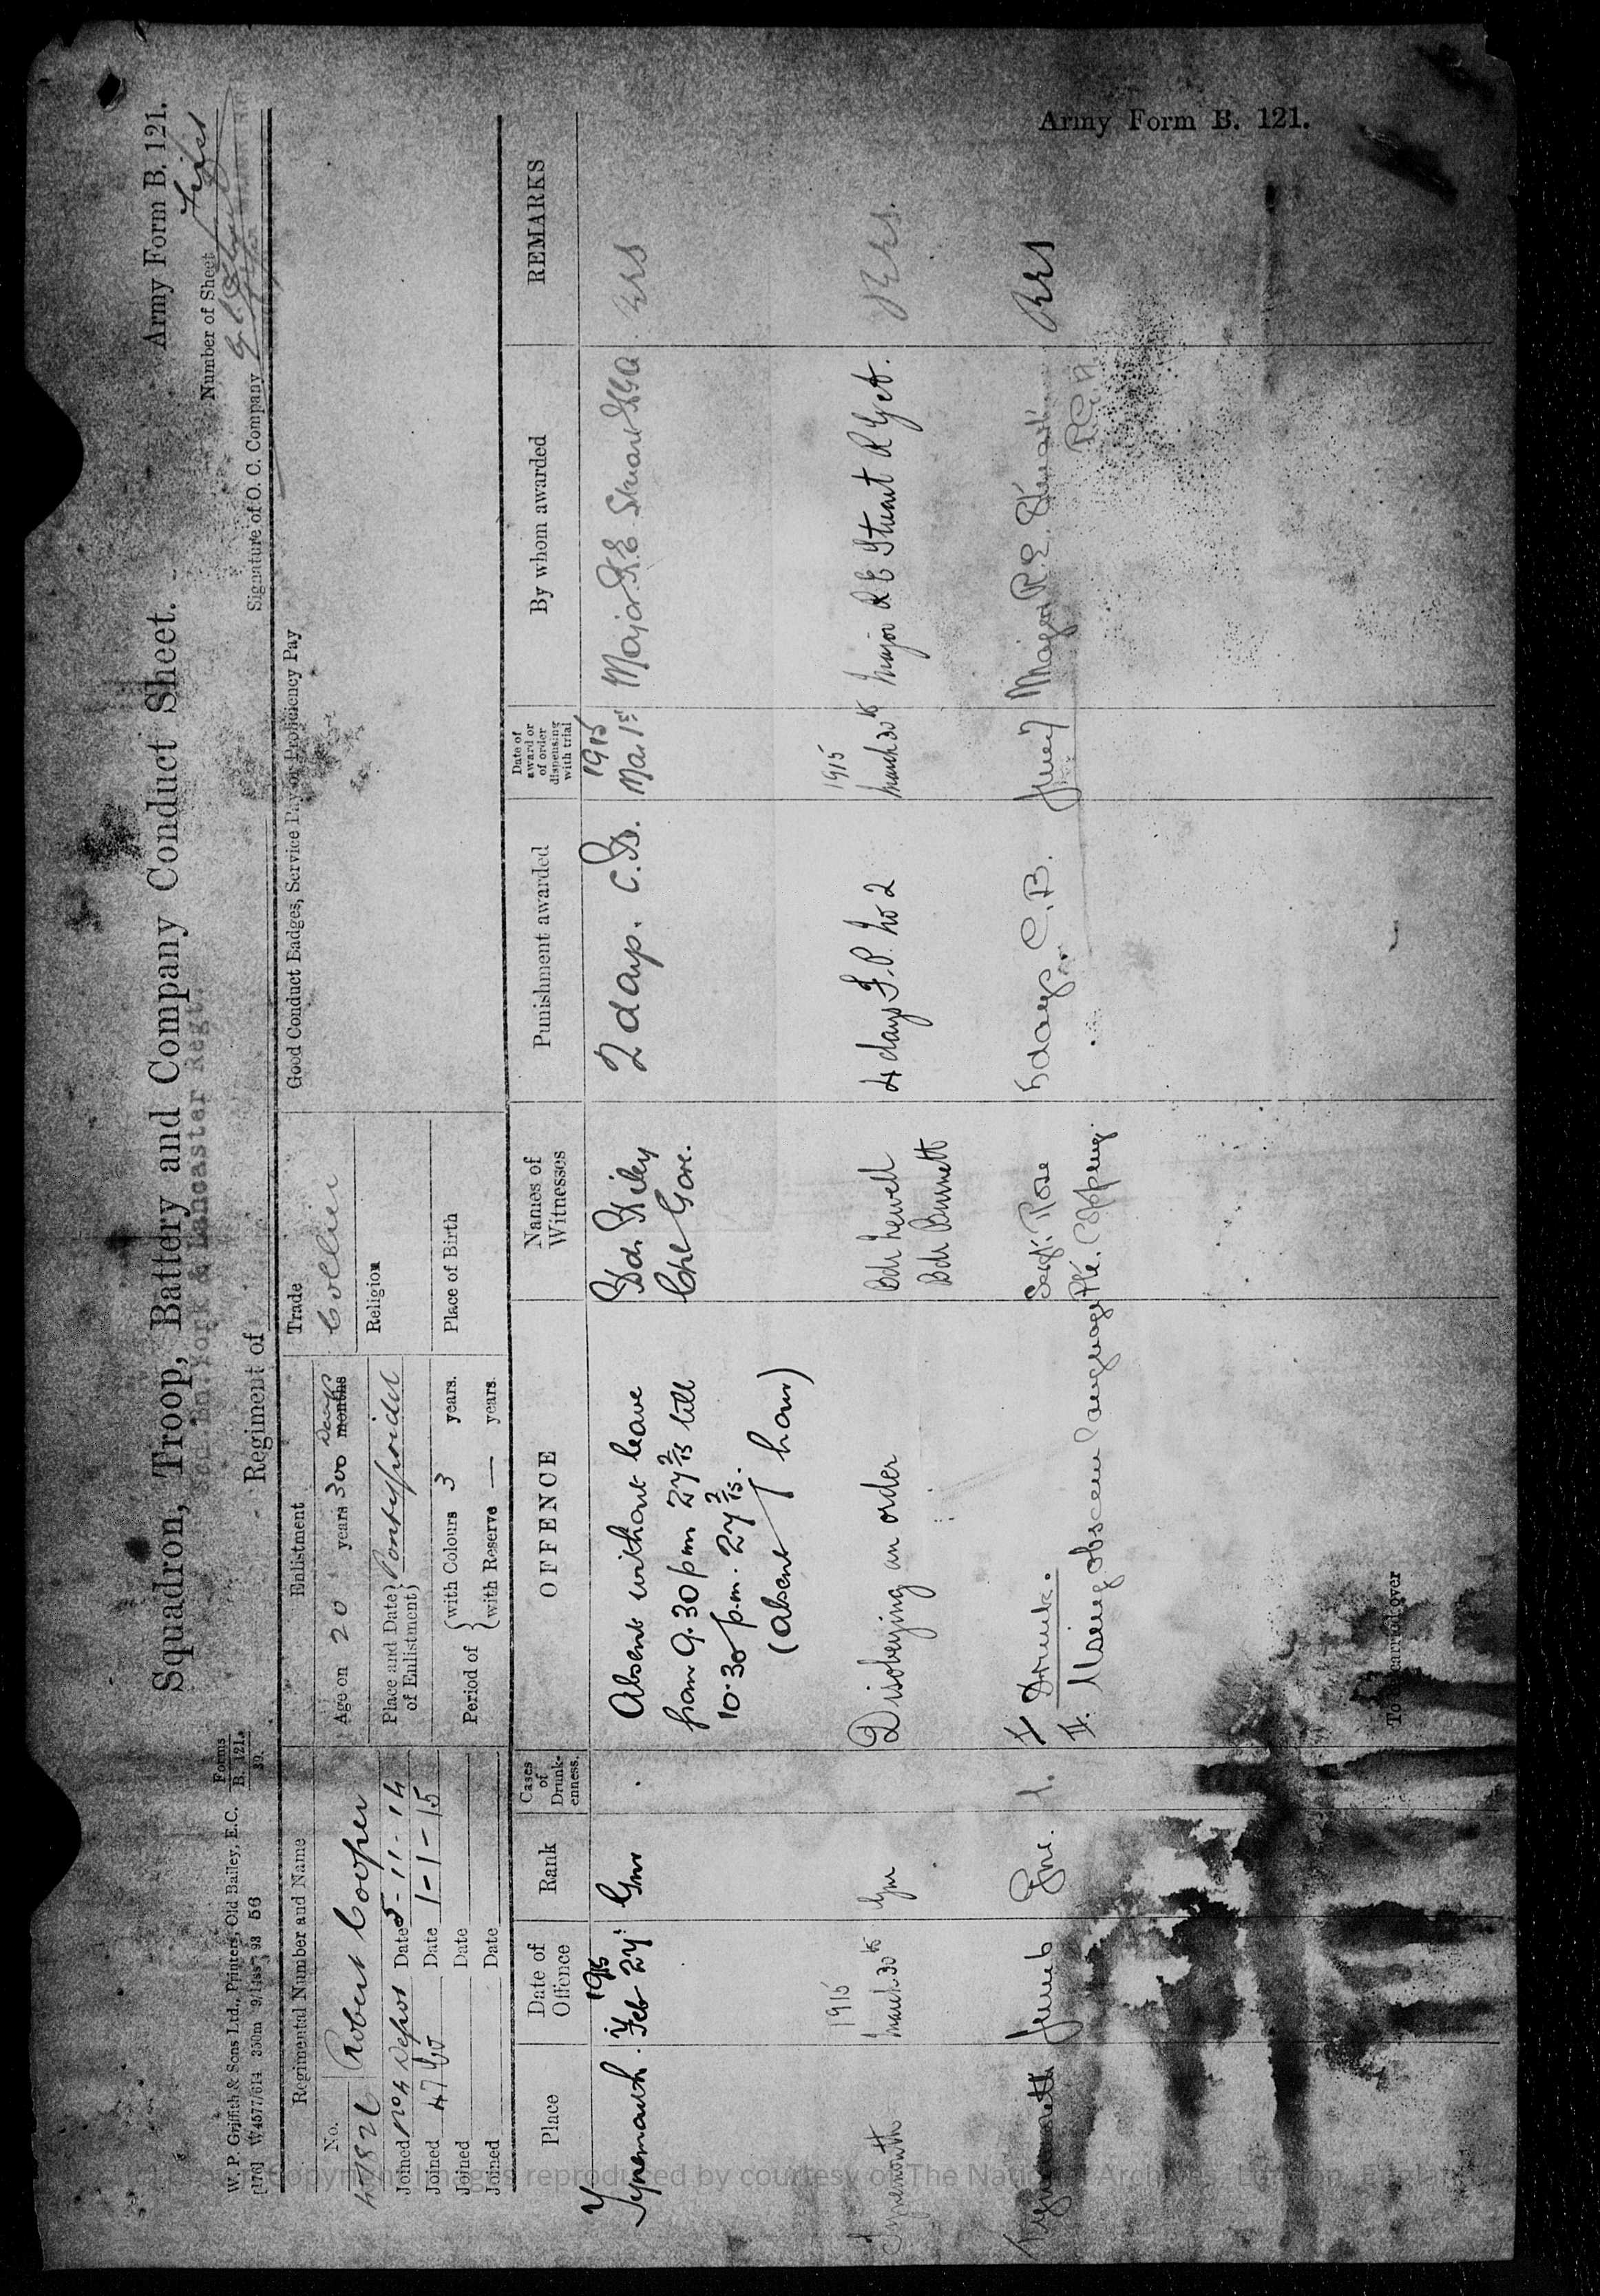 Squadron, Troop, Battery and Company Conduct Sheet.
Army Form B. 121.
W. P. Griffith & Sons Ltd., Printers, Old Bailey, E.C.
Forms
B. 121.
39.
Number of Sheet First
York & Lancaster Regt.
Regiment of
Signature of O. C. Company
Regimental Number and Name
Enlistment
Trade
Good Conduct Badges, Service Pay or Proficiency Pay
No.
Robert Cooper
Age on 20 years 300 days months
Collier
Joined No 4 Depot Date 5-11-14
Place and Date of Enlistment} Pontefract
Religion
Joined Date 1-1-15
Joined Date
Period of {with Colours 3 years.
Place of Birth
Joined Date
{with Reserve — years.
Place
Date of Offence
Rank
Cases of Drunkenness.
OFFENCE
Names of Witnesses
Punishment awarded
Date of award or of order dispensing with trial
By whom awarded
REMARKS
Tynemouth. 1915 Feb 27 Gnr Absent without leave
from 9.30 pm 27/2/15 till
10.30 p.m. 27/2/15.
(absent 1 hour)
Cpl Gore.
2 days. C.B. 1915 Mar 1st Major R.E Stuart RGA RES
Tynemouth 1915 March 30th Gnr Disobeying an order Bdr Newell
Bdr Burnett
4 days F.P. No 2 1915 March 30th Major R E Stuart RGA. RES.
Tynemouth June 6 Gnr. 1. I Drunk. Sergt. Rose
II. Using obscene language Pte. Topping.
days C.B. June 7 Major R.E. Stuart
R.G.A
RES
To be carried over
Army Form B. 121.
(c) Crown Copyright Images reproduced by courtesy of The National Archives, London, England.